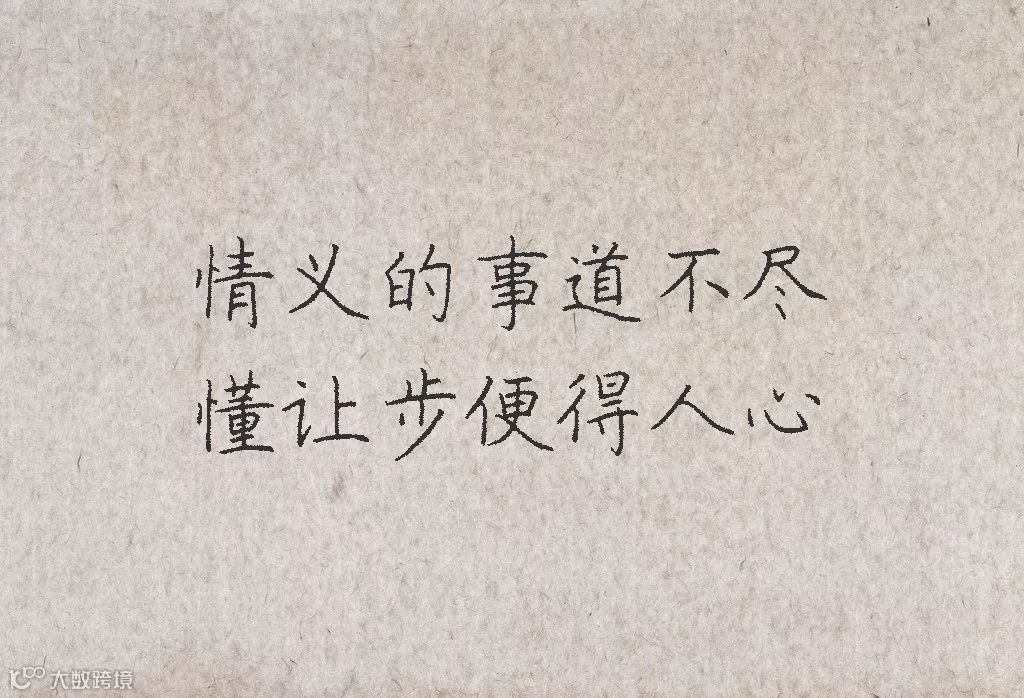 情义的事道不尽
懂让步便得人心
大数跨境